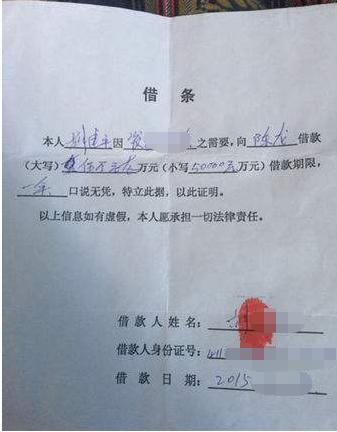 借条
本人 建平因 之需要，向 陈龙 借款
（大写） 伍万元 万元（小写50000元万元）借款期限，
一年 口说无凭，特立此据，以此证明。
以上信息如有虚假，本人愿承担一切法律责任。
借款人姓名：
借款人身份证号：411
借款日期：2015